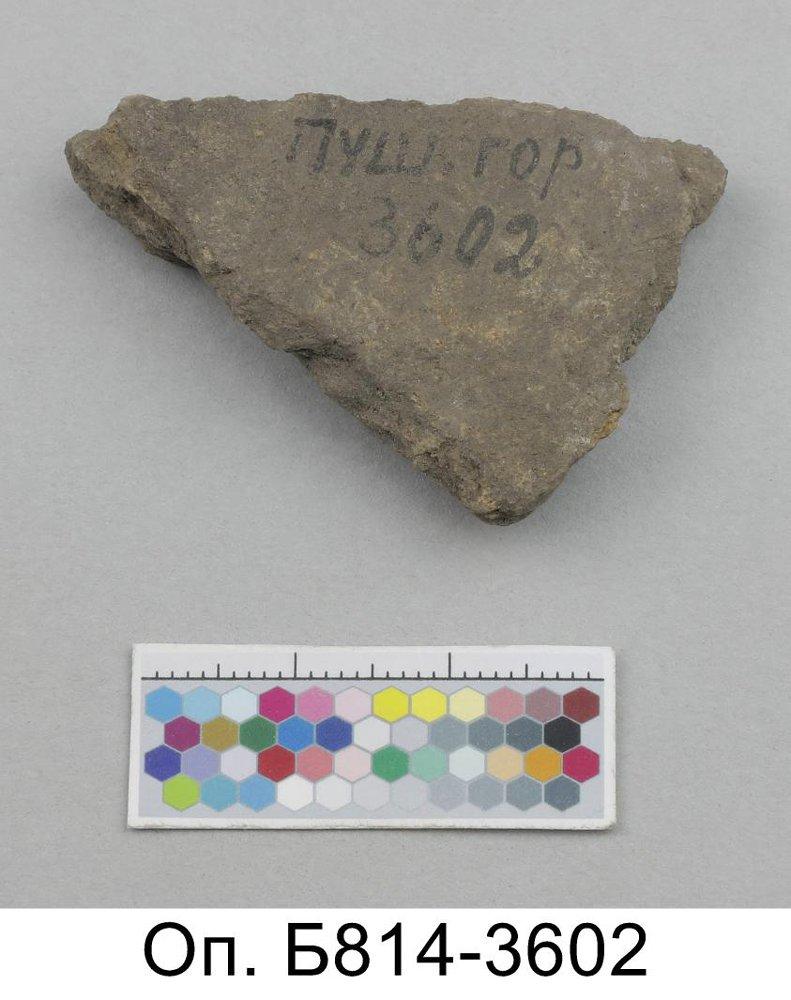 ПУШ. ГОР
3602
Оп. Б814-3602